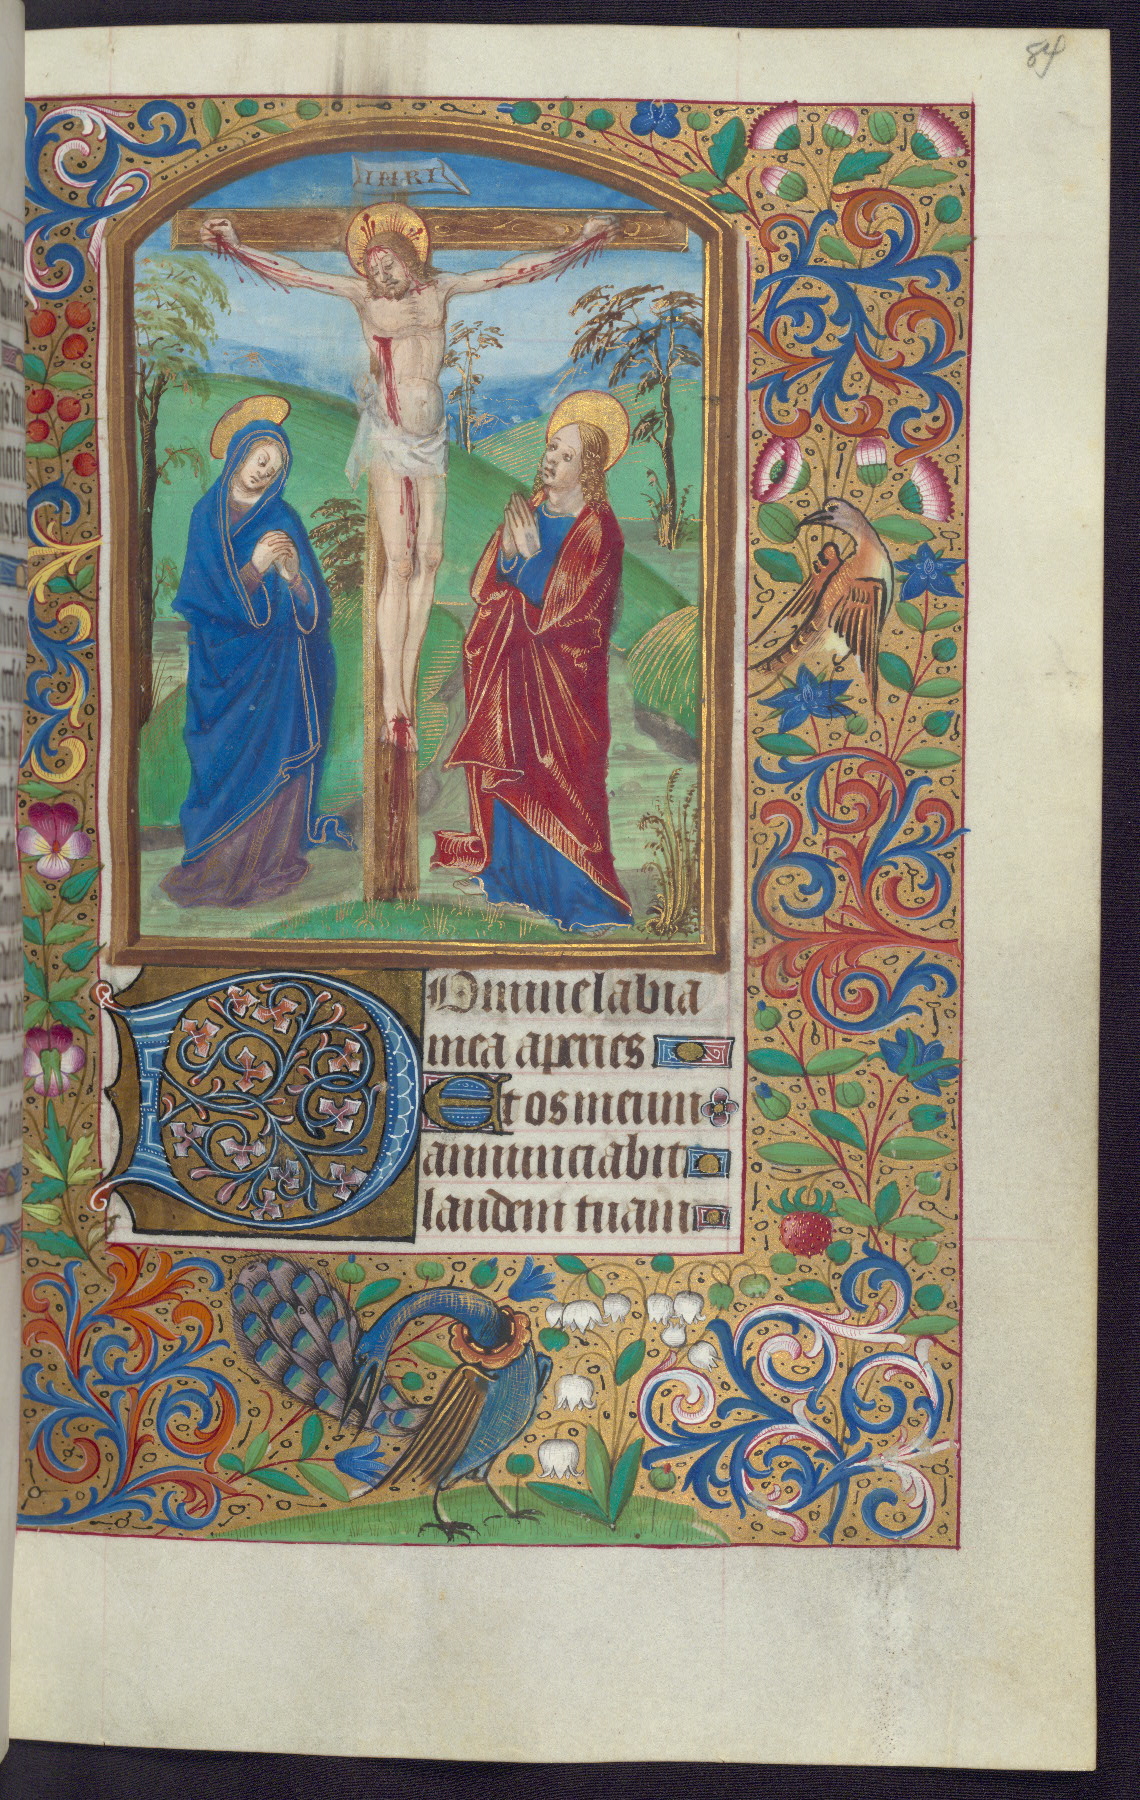 84
INRI
Domine labia
mea aperies
Et os meum
annunciabit
laudem tuam